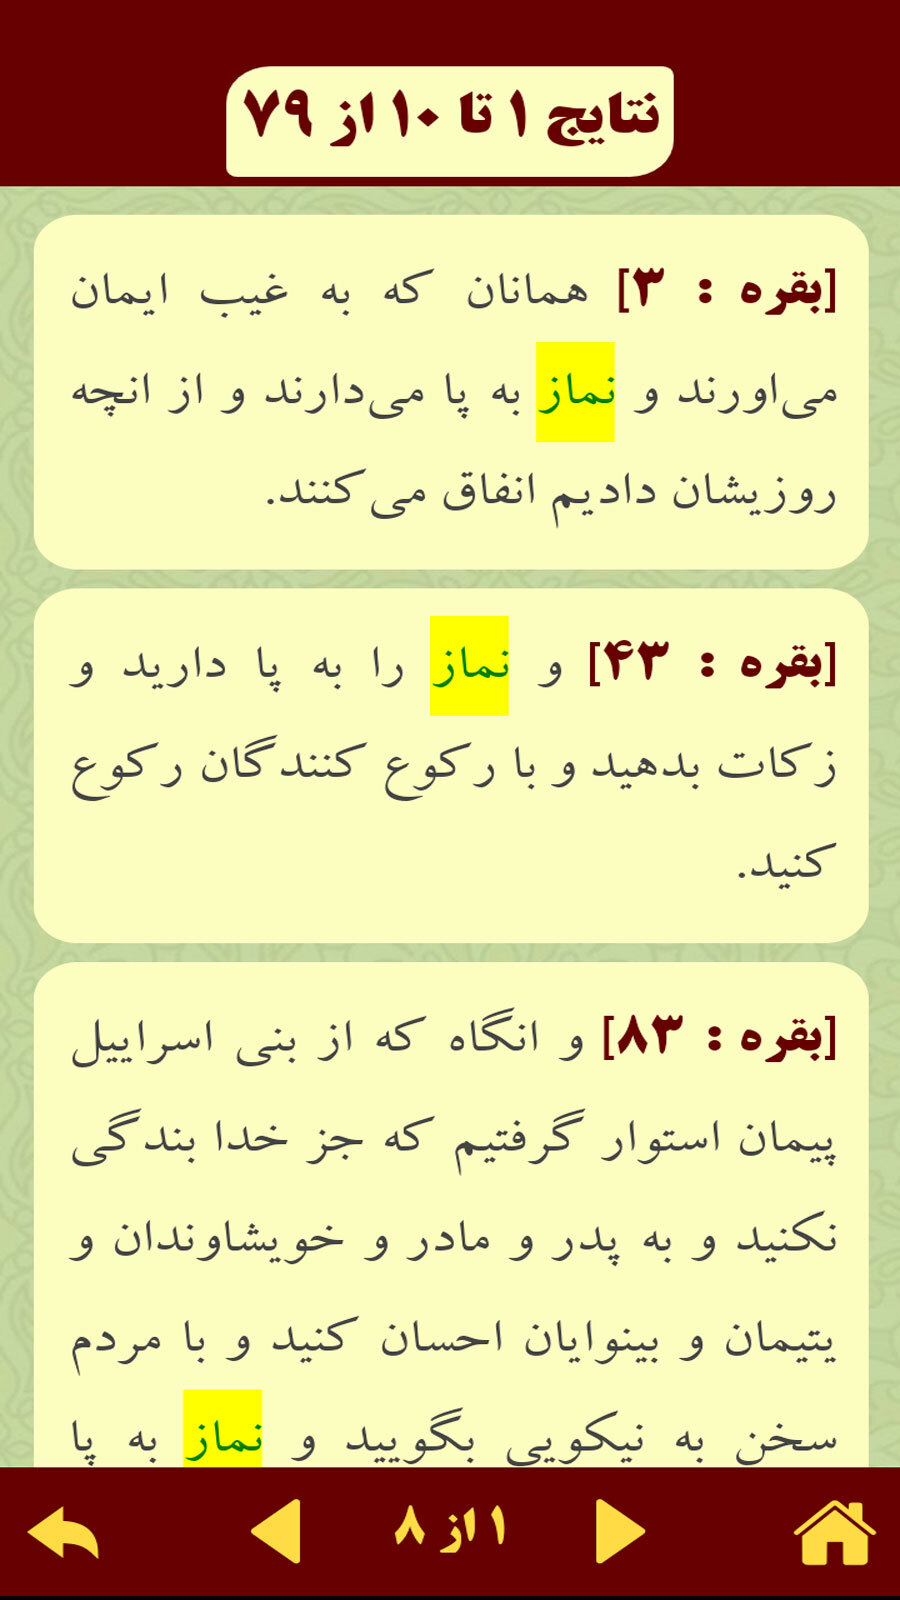 نتایج ۱ تا ۱۰ از ۷۹
[بقره : ۳] همانان که به غیب ایمان
می‌اورند و نماز به پا می‌دارند و از انچه
روزیشان دادیم انفاق می‌کنند.
[بقره : ۴۳] و نماز را به پا دارید و
زکات بدهید و با رکوع کنندگان رکوع
کنید.
[بقره : ۸۳] و انگاه که از بنی اسراییل
پیمان استوار گرفتیم که جز خدا بندگی
نکنید و به پدر و مادر و خویشاوندان و
یتیمان و بینوایان احسان کنید و با مردم
سخن به نیکویی بگویید و نماز به پا
۱ از ۸